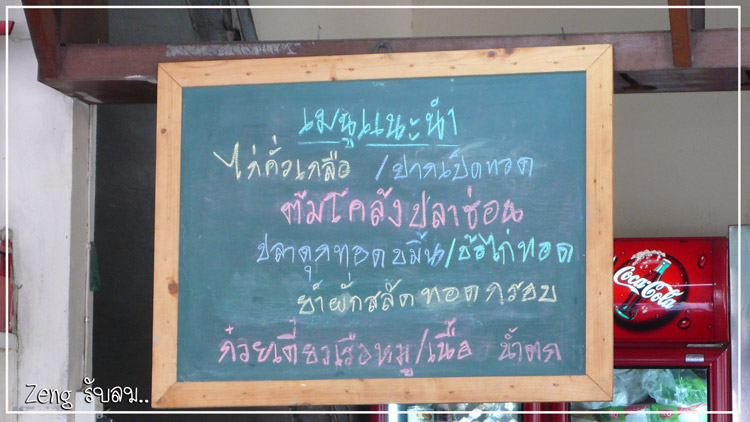 เมนูแนะนำ
ไก่คั่วเกลือ /ปากเป็ดทอด
ต้มโคล้งปลาช่อน
ปลาดุกทอดขมิ้น/ข้อไก่ทอด
ยำผักสลัดทอดกรอบ
ก๋วยเตี๋ยวเรือหมู/เนื้อ น้ำตก
Coca-Cola
Zeng รับลม..